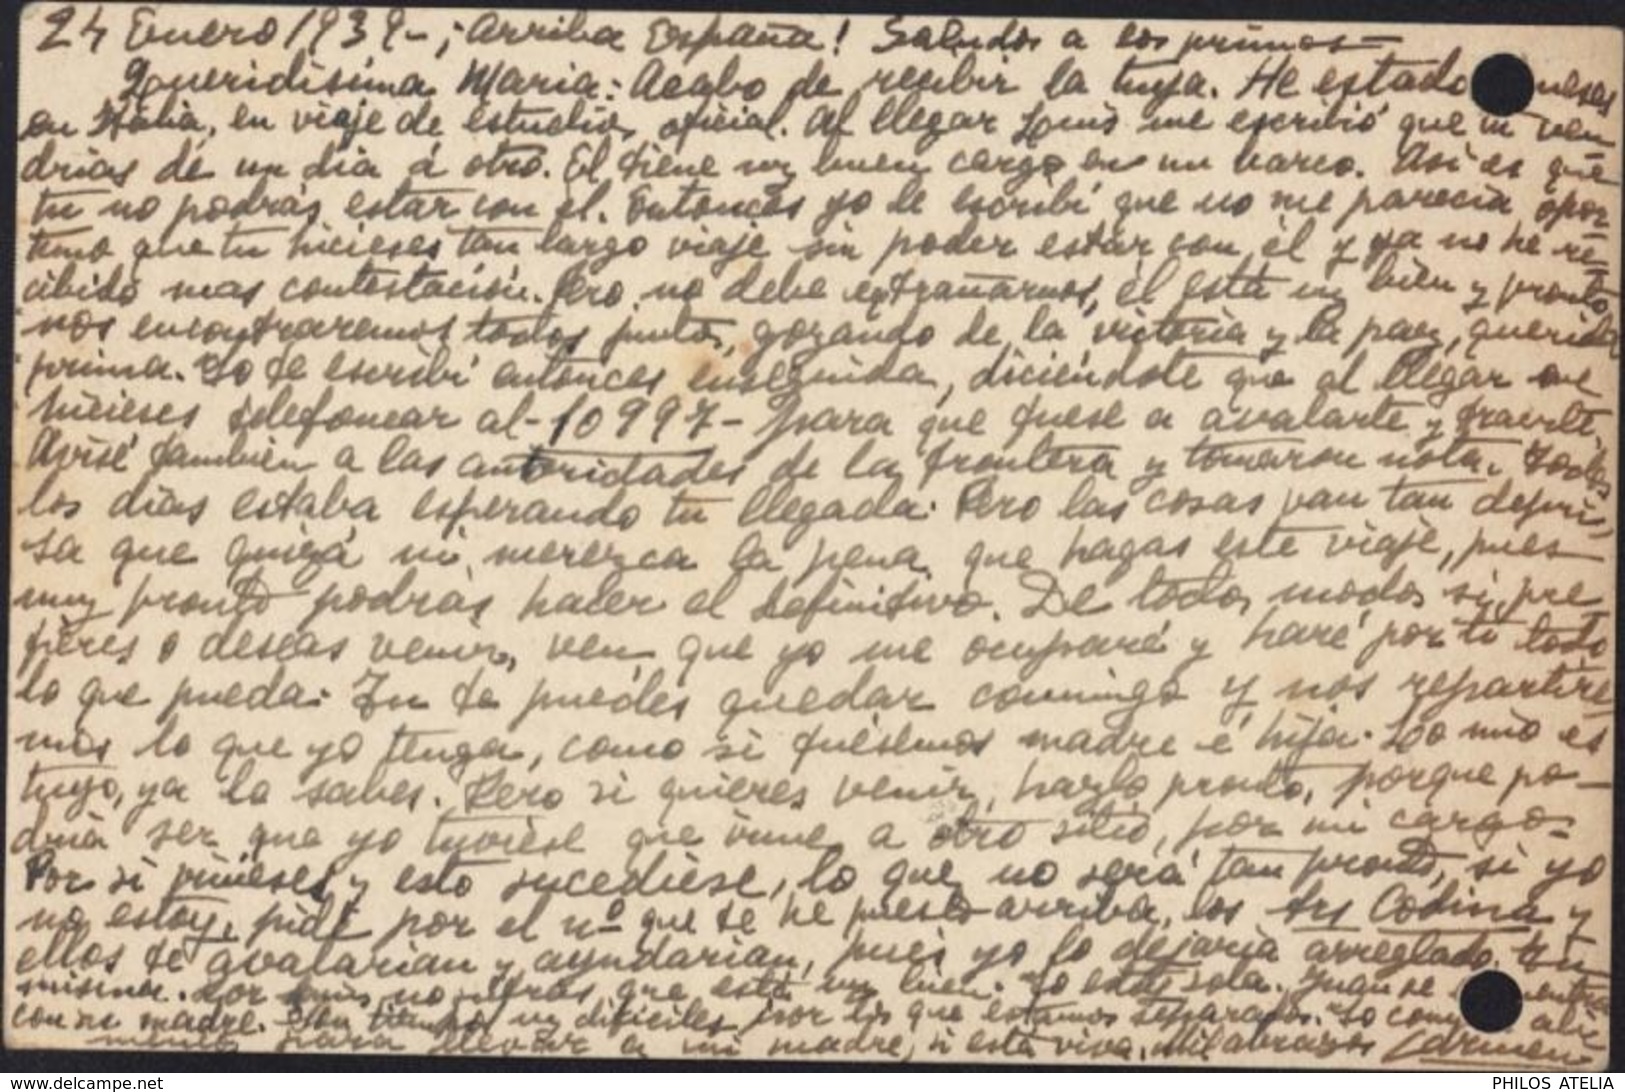 24 Enero 1939 - ¡Arriba España! Saludos a los primos -
Queridisima Maria: Acabo de recibir la tuya. He estado meses
en Italia, en viaje de estudios oficial. Al llegar Luis me escribió que tu ven
drias de un dia á otro. El tiene un buen cargo en un barco. Asi es que
tu no podrás estar con él. Entonces yo le escribí que no me parecia opor
tuno que tu hicieses tan largo viaje sin poder estar con él y ya no he re-
cibido mas contestación. Pero no debe extrañarnos, él está muy bien y pronto
nos encontraremos todos juntos, gozando de la victoria y la paz, querida
prima. Yo te escribí entonces enseguida, diciéndote que al llegar me
hicieses telefonear al - 10997 - para que fuese a avalarte y traerte.
Avisé tambien a las autoridades de la frontera y tomaron nota. Todos
los dias estaba esperando tu llegada. Pero las cosas van tan depri-
sa que quizá ni merezca la pena que hagas este viaje, pues
muy pronto podrás hacer el definitivo. De todos modos si pre
fieres o deseas venir, ven que yo me ocuparé y haré por ti todo
lo que pueda. Tu te puedes quedar conmigo y nos repartire
mos lo que yo tenga, como si fuésemos madre é hija. Lo mio es
tuyo, ya lo sabes. Pero si quieres venir, hazlo pronto, porque po-
dria ser que yo tuviese que irme a otro sitio, por mi cargo.
Por si vinieses y esto sucediese, lo que no será tan pronto, si yo
no estoy, pide por el nº que te he puesto arriba, los Srs Codina y
ellos te avalarian y ayudarian, pues yo lo dejaria arreglado. tu
misma. Por Luis no que está muy bien. Yo estoy sola. Juan se
con su madre. Son tiempos muy dificiles por los que estamos separados. Yo
para llevar a mi madre, si está viva. Mil abrazos Carmen
PHILOS ATELIA